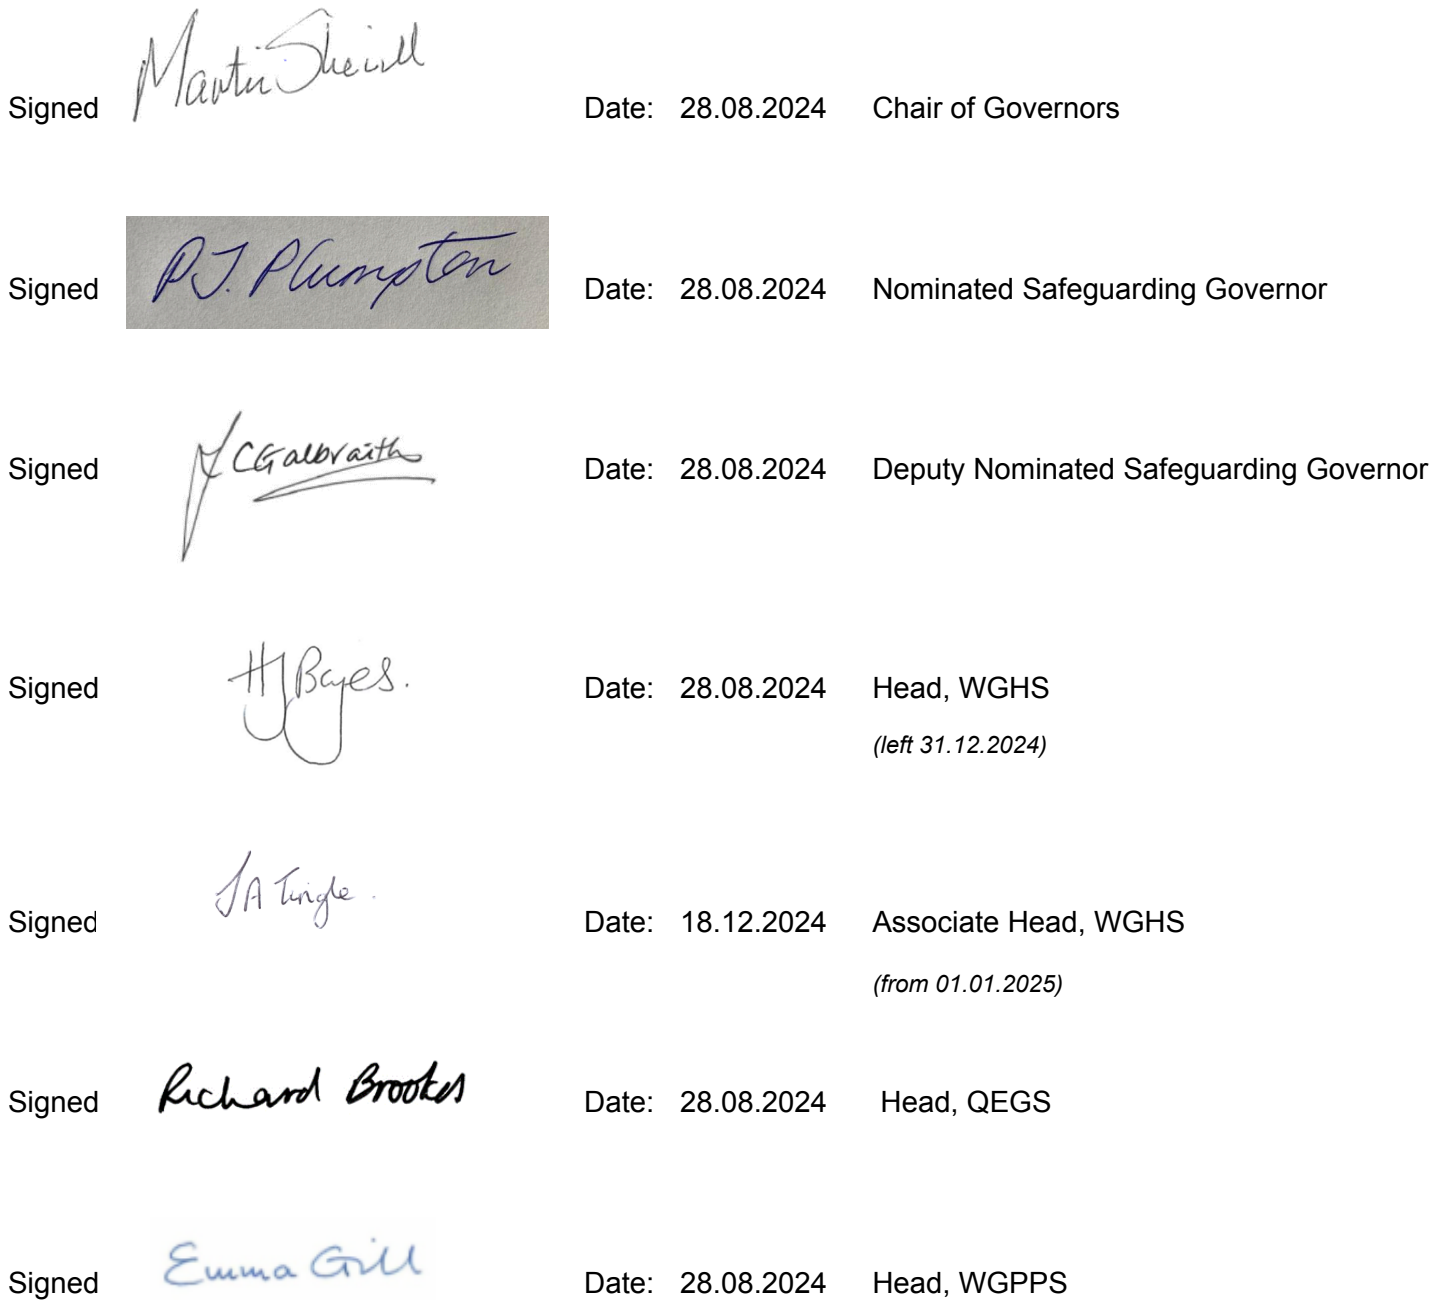 Signed Martin Sheard Date: 28.08.2024 Chair of Governors
Signed P.J. Plumpton Date: 28.08.2024 Nominated Safeguarding Governor
Signed J C Galbraith Date: 28.08.2024 Deputy Nominated Safeguarding Governor
Signed HJBayes. Date: 28.08.2024 Head, WGHS
(left 31.12.2024)
Signed J A Tingle. Date: 18.12.2024 Associate Head, WGHS
(from 01.01.2025)
Signed Richard Brookes Date: 28.08.2024 Head, QEGS
Signed Emma Gill Date: 28.08.2024 Head, WGPPS